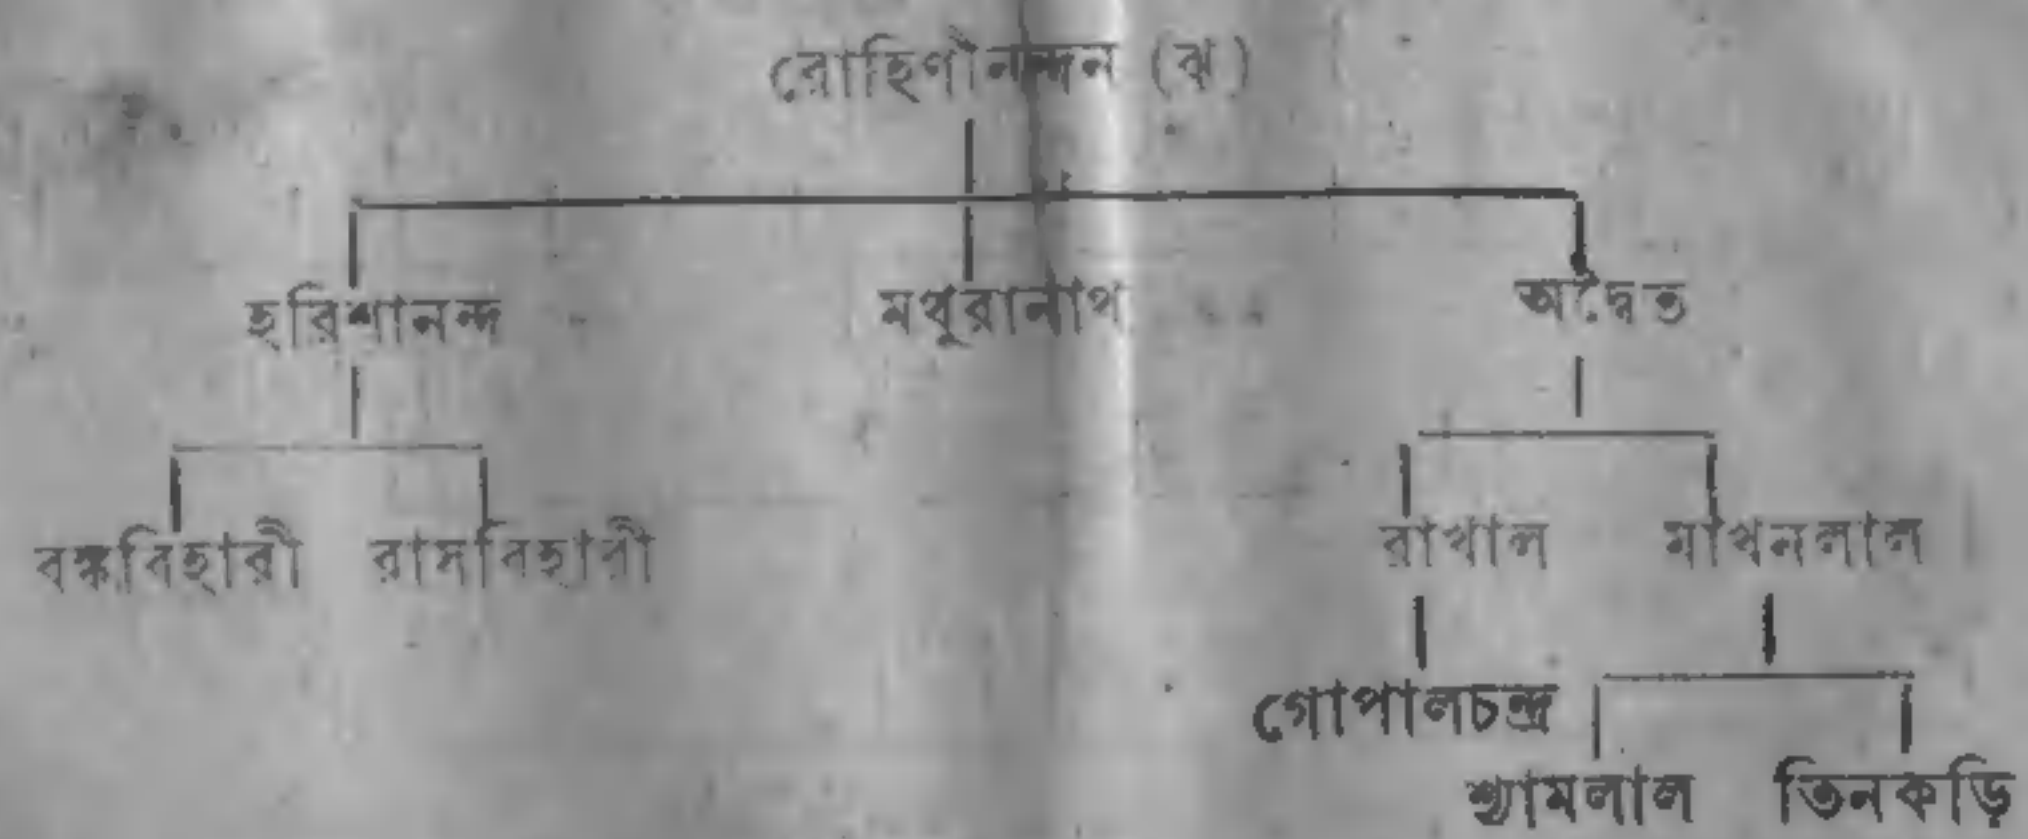 রোহিণীনন্দন (ঝ)
হরিশানন্দ মথুরানাথ অদ্বৈত
বঙ্কবিহারী রাসবিহারী রাখাল মাখনলাল
গোপালচন্দ্র
শ্যামলাল তিনকড়ি